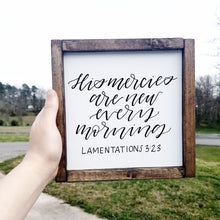 His mercies
are new
every
mornings
LAMENTATIONS 3:23